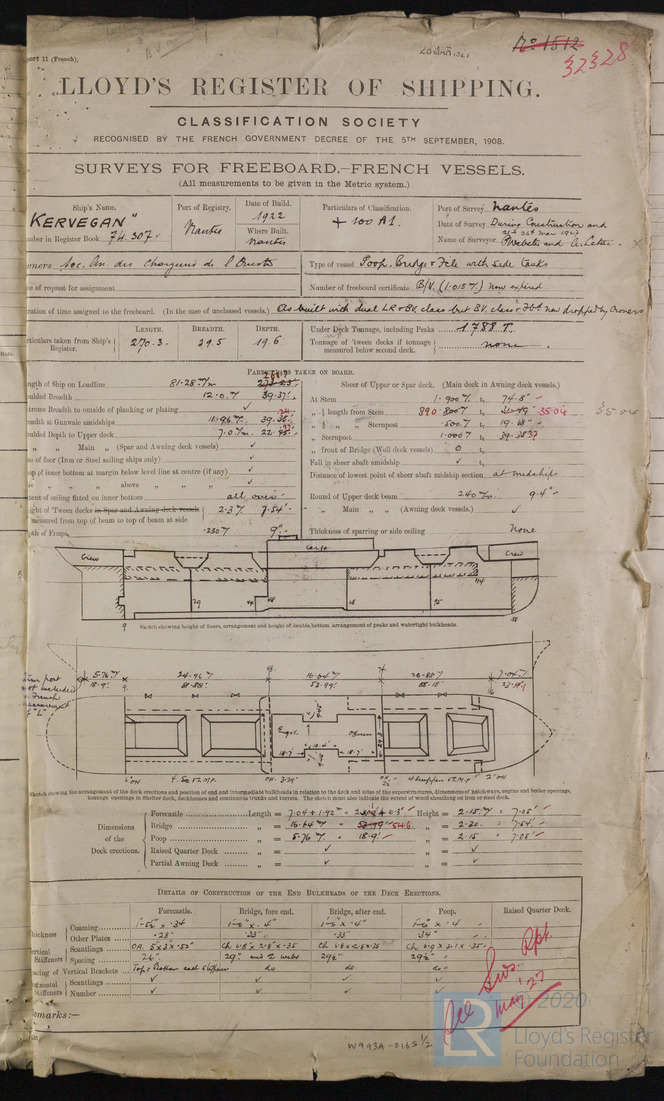 port 11 (French).
20 MAR 1927
No 1512
32328
LLOYD'S REGISTER OF SHIPPING.
CLASSIFICATION SOCIETY
RECOGNISED BY THE FRENCH GOVERNMENT DECREE OF THE 5TH SEPTEMBER, 1908.
SURVEYS FOR FREEBOARD.—FRENCH VESSELS.
(All measurements to be given in the Metric system.)
Ship's Name. Port of Registry. Date of Build. Particulars of Classification. Port of Survey Nantes
KERVEGAN" Nantes 1922 + 100 A1. Date of Survey During Construction and
Where Built.
mber in Register Book 74.307 Nantes Name of Surveyor
wners Soc. An. des Chargeurs de l'Ouest Type of vessel Poop, Bridge & Fcle with side tanks
te of request for assignment Number of freeboard certificate B/V. (1.015%) now expired
ration of time assigned to the freeboard. (In the case of unclassed vessels.) As built with dual LR & BV. class but BV. class & Fbd now dropped by Owners
LENGTH. BREADTH. DEPTH. Under Deck Tonnage, including Peaks 1788 T.
rticulars taken from Ship's Register. 270.3. 29.5 19.6 Tonnage of 'tween decks if tonnage measured below second deck. none
PARTICULARS TAKEN ON BOARD.
ngth of Ship on Loadline 81.28 m
Sheer of Upper or Spar deck. (Main deck in Awning deck vessels.)
ulded Breadth 12.0 39.37
At Stem 1.900 74.8"
treme Breadth to outside of planking or plating
„ ¼ length from Stem 890 35.04
eadth at Gunwale amidships 11.96
„ ¼ „ „ Sternpost .500 19.68"
ulded Depth to Upper deck 7.0
„ Sternpost 1.000 39.37
„ „ Main „ (Spar and Awning deck vessels)
„ front of Bridge (Well deck vessels) 0
se of floor (Iron or Steel sailing ships only)
Fall in sheer abaft amidship
op of inner bottom at margin below level line at centre (if any)
Distance of lowest point of sheer abaft midship section at midships
„ „ „ above „ „
tent of ceiling fitted on inner bottom all over
Round of Upper deck beam 240 9.4"
ight of 'Tween decks in Spar and Awning deck vessels measured from top of beam to top of beam at side 2.3 7.54'
„ Main „ „ (Awning deck vessels.)
pth of Frame .230 9"
Thickness of sparring or side ceiling None
Crew Cargo Crew
Sketch showing height of floors, arrangement and height of double bottom arrangement of peaks and watertight bulkheads.
5.76 24.96 16.64 26.88 7.04
18.9' 81.89' 88.18'
Engs.
Sketch showing the arrangement of the deck erections and position of end and intermediate bulkheads in relation to the deck and sides of the superstructures, dimensions of hatchways, engine and boiler openings,
tonnage openings in Shelter deck, deckhouses and continuous trunks and turrets. The sketch must also indicate the extent of wood sheathing on iron or steel deck.
Dimensions of the Deck erections.
Forecastle Length = 7.04 + 1.92 Height = 2.15 = 7.05'
Bridge „ = 16.64 „ = 2.30 = 7.54'
Poop „ = 5.76 = 18.9' „ = 2.15 7.05'
Raised Quarter Deck „ = „ =
Partial Awning Deck „ = „ =
DETAILS OF CONSTRUCTION OF THE END BULKHEADS OF THE DECK ERECTIONS.
Forecastle. Bridge, fore end. Bridge, after end. Poop. Raised Quarter Deck.
hickness Coaming
Other Plates .28" .33" .33" .34"
ertical Stiffeners Scantlings
Spacing 26" 29" and 2 webs 29½" 29½"
acing of Vertical Brackets Top & Bottom each stiffener do do do
rizontal Stiffeners Scantlings
Number
emarks:—
See Sws. Rpt. May '27
W993A-0165 1/2
© 2020
LR
Lloyd's Register
Foundation